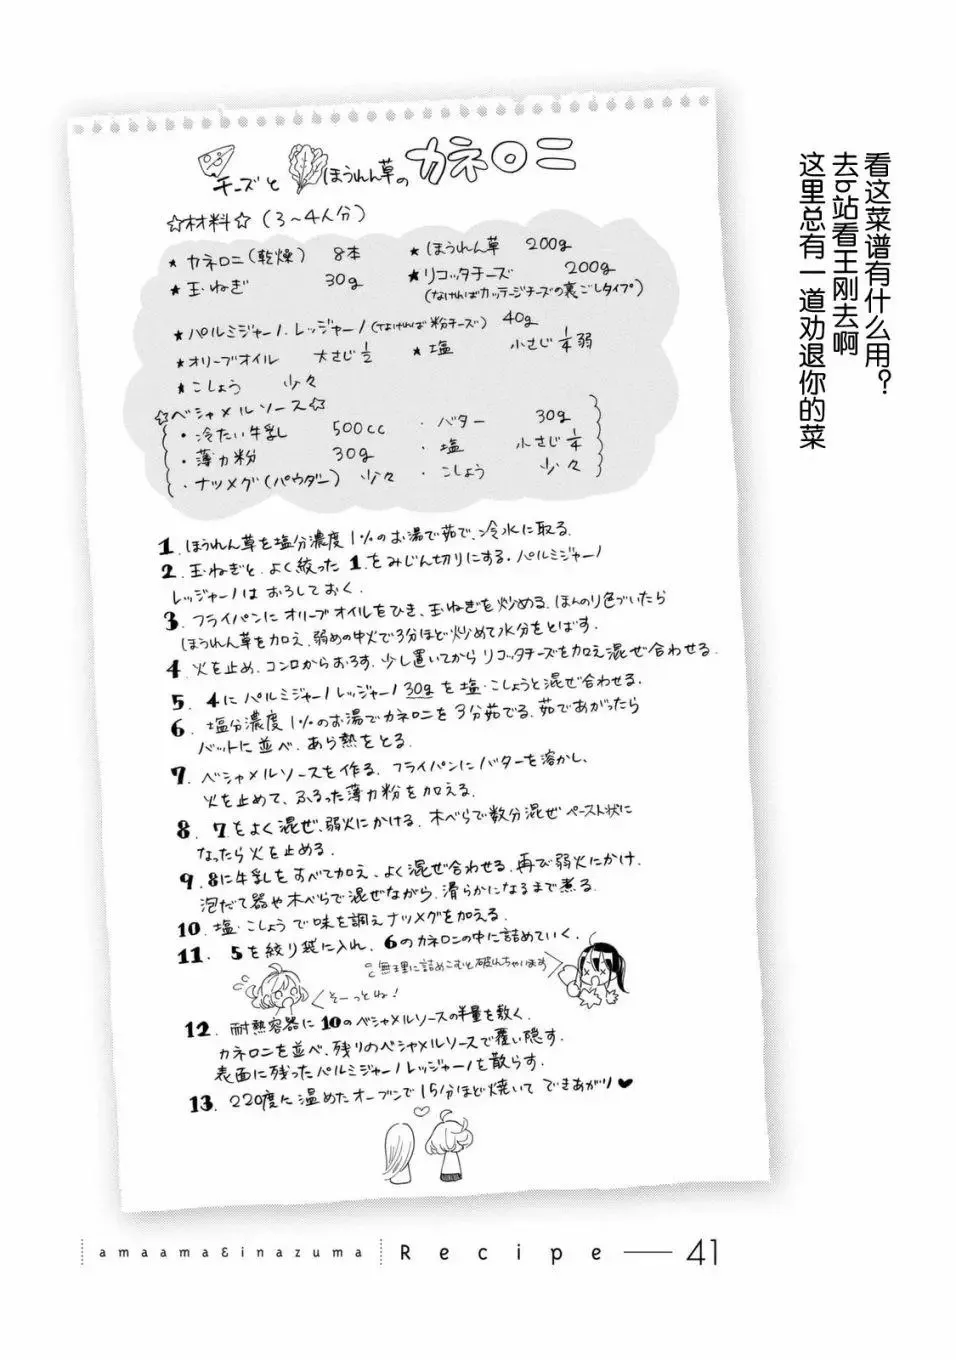 チーズとほうれん草のカネロニ
☆材料☆(3〜4人分)
★カネロニ(乾燥) 8本
★ほうれん草 200g
★玉ねぎ 30g
★リコッタチーズ 200g
(なければカッテージチーズの裏ごしタイプ)
★パルミジャーノ・レッジャーノ(なければ粉チーズ) 40g
★オリーブオイル 大さじ1/2
★塩 小さじ1/4弱
★こしょう 少々
☆ベシャメルソース☆
・冷たい牛乳 500cc
・バター 30g
・薄力粉 30g
・塩 小さじ1/4
・ナツメグ(パウダー) 少々
・こしょう 少々
1.ほうれん草を塩分濃度1%のお湯で茹で、冷水に取る。
2.玉ねぎと、よく絞った1.をみじん切りにする。パルミジャーノ
レッジャーノはおろしておく。
3.フライパンにオリーブオイルをひき、玉ねぎを炒める。ほんのり色づいたら
ほうれん草を加え、弱めの中火で3分ほど炒めて水分をとばす。
4.火を止め、コンロからおろす。少し置いてからリコッタチーズを加え混ぜ合わせる。
5.4にパルミジャーノレッジャーノ30gを塩・こしょうと混ぜ合わせる。
6.塩分濃度1%のお湯でカネロニを3分茹でる。茹であがったら
バットに並べ、あら熱をとる。
7.ベシャメルソースを作る。フライパンにバターを溶かし、
火を止めて、ふるった薄力粉を加える。
8.7をよく混ぜ、弱火にかける。木べらで数分混ぜペースト状に
なったら火を止める。
9.8に牛乳をすべて加え、よく混ぜ合わせる。再び弱火にかけ、
泡だて器や木べらで混ぜながら、滑らかになるまで煮る。
10.塩・こしょうで味を調えナツメグを加える。
11.5を絞り袋に入れ、6のカネロニの中に詰めていく。
無理に詰めこむと破れちゃいます
そーっとね!
12.耐熱容器に10のベシャメルソースの半量を敷く。
カネロニを並べ、残りのベシャメルソースで覆い隠す。
表面に残ったパルミジャーノレッジャーノを散らす。
13.220度に温めたオーブンで15分ほど焼いてできあがり♥
看这菜谱有什么用?
去b站看王刚去啊
这里总有一道劝退你的菜
amaama&inazuma Recipe 41